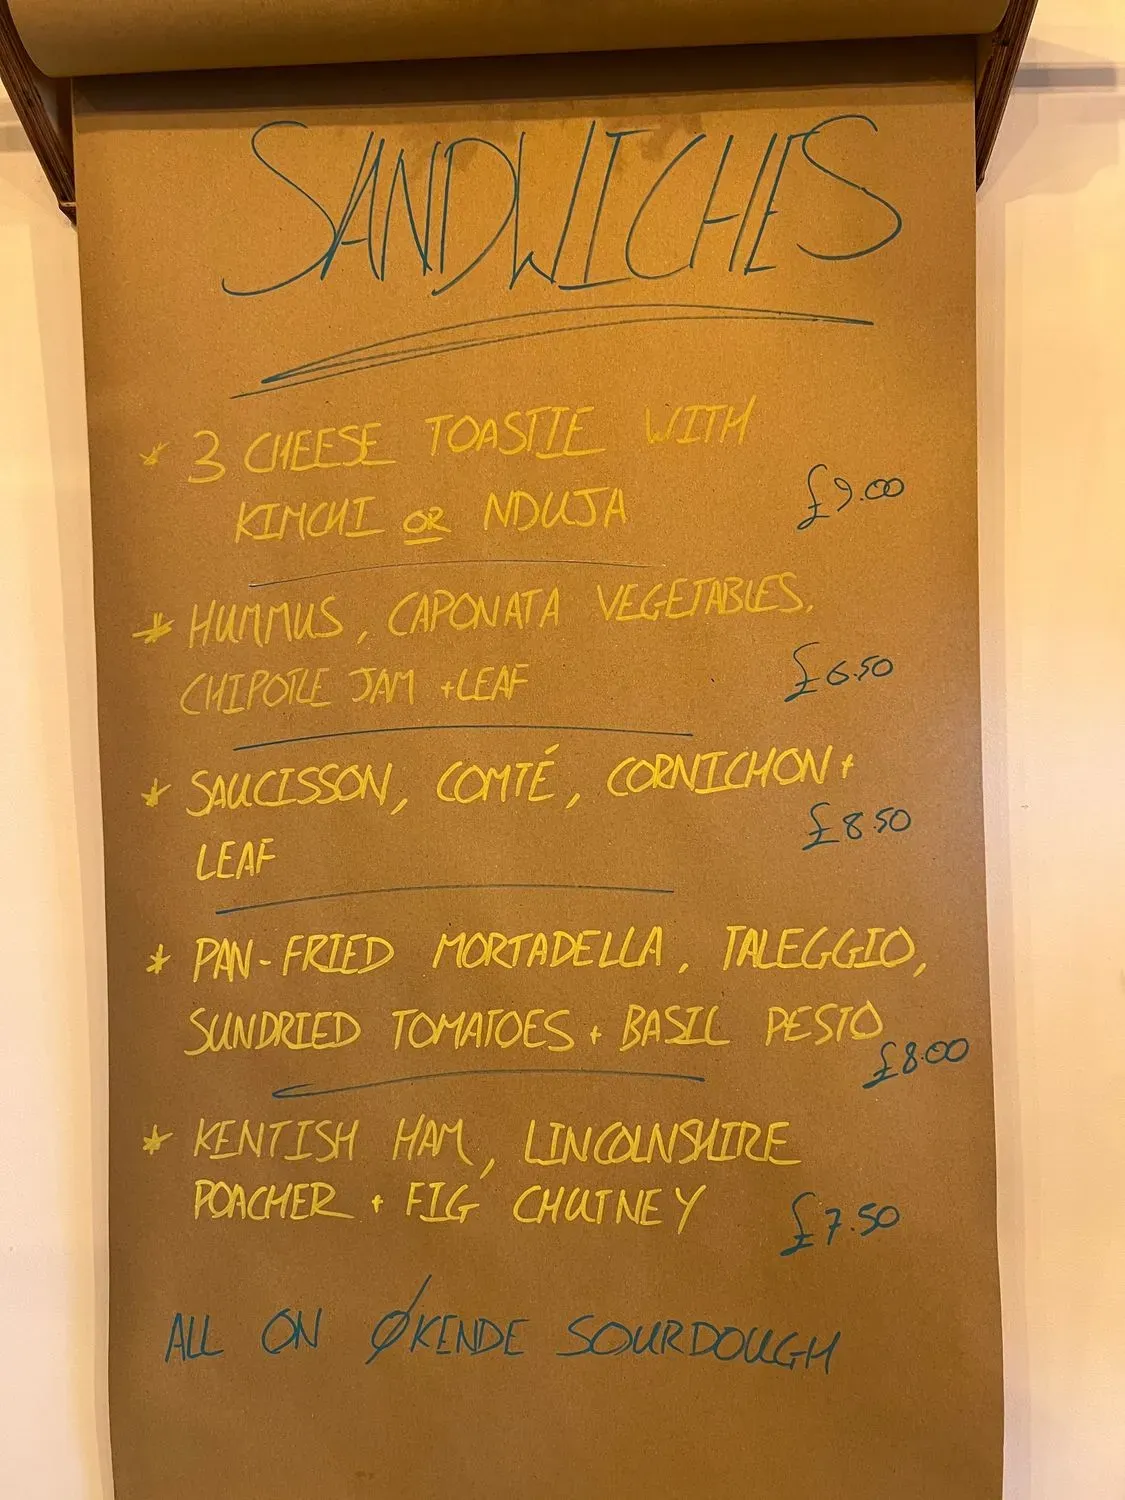 SANDWICHES
* 3 CHEESE TOASTIE WITH
KIMCHI OR NDUJA
£9.00
* HUMMUS, CAPONATA VEGETABLES,
CHIPOTLE JAM + LEAF
£6.50
* SAUCISSON, COMTÉ, CORNICHON +
LEAF
£8.50
* PAN-FRIED MORTADELLA, TALEGGIO,
SUNDRIED TOMATOES + BASIL PESTO
£8.00
* KENTISH HAM, LINCOLNSHIRE
POACHER + FIG CHUTNEY
£7.50
ALL ON ØKENDE SOURDOUGH